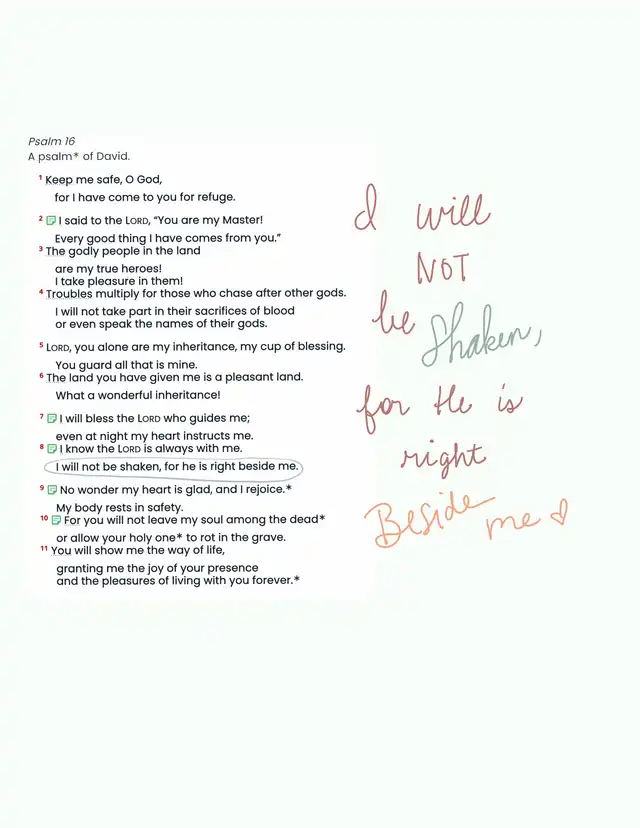 Psalm 16
A psalm* of David.
1 Keep me safe, O God,
for I have come to you for refuge.
2 I said to the LORD, “You are my Master!
Every good thing I have comes from you.”
3 The godly people in the land
are my true heroes!
I take pleasure in them!
4 Troubles multiply for those who chase after other gods.
I will not take part in their sacrifices of blood
or even speak the names of their gods.
5 LORD, you alone are my inheritance, my cup of blessing.
You guard all that is mine.
6 The land you have given me is a pleasant land.
What a wonderful inheritance!
7 I will bless the LORD who guides me;
even at night my heart instructs me.
8 I know the LORD is always with me.
I will not be shaken, for he is right beside me.
9 No wonder my heart is glad, and I rejoice.*
My body rests in safety.
10 For you will not leave my soul among the dead*
or allow your holy one* to rot in the grave.
11 You will show me the way of life,
granting me the joy of your presence
and the pleasures of living with you forever.*
I will
NOT
be Shaken,
for He is
right
Beside me